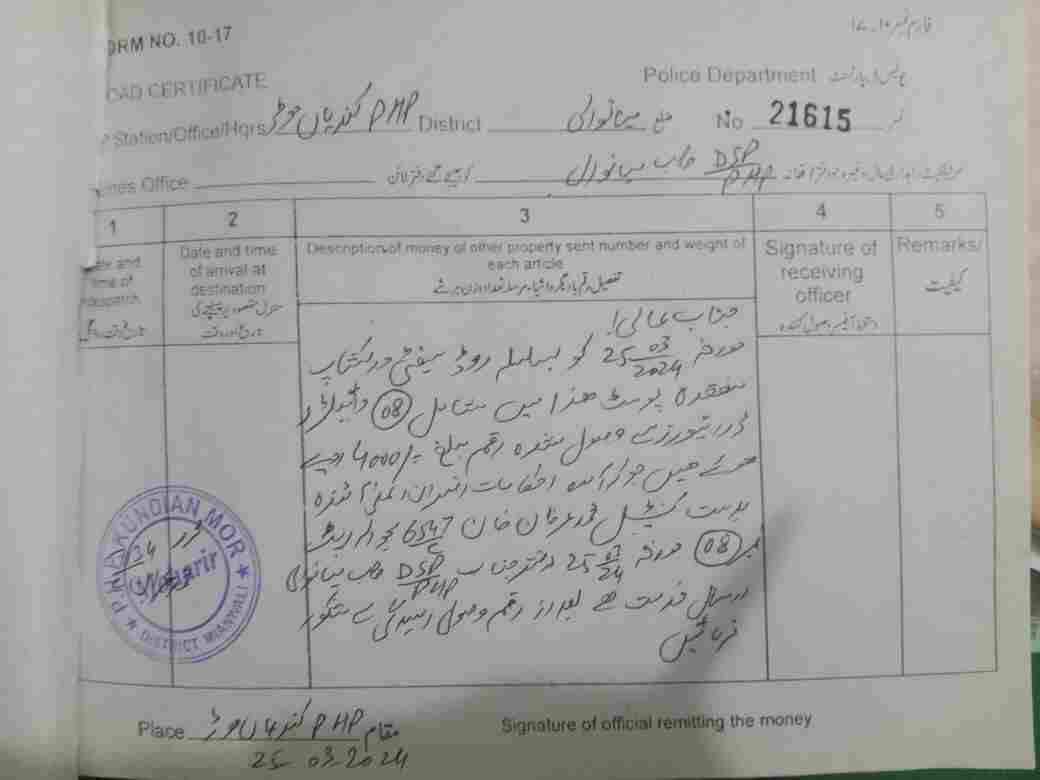 فارم نمبر ۱۰۔۱۷
ORM NO. 10-17
OAD CERTIFICATE
Police Department پولیس ڈیپارٹمنٹ
Station/Office/Hqrs کندیاں موڑ PHP District میانوالی ضلع No 21615 نمبر
ines Office DSP PHP صاحب میانوالی
1 2 3 4 5
ate and time of despatch
تاریخ وقت روانگی
Date and time of arrival at destination
منزل مقصود پر پہنچنے کی تاریخ اور وقت
Description of money of other property sent number and weight of each article
Signature of receiving officer
دستخط آفیسر وصول کنندہ
Remarks/
کیفیت
جناب عالی!
مورخہ 25 03 2024 کو بسلسلہ روڈ سیفٹی ورکشاپ
منعقدہ پوسٹ ھذا میں شامل 08
ڈرائیورز سے وصول شدہ رقم مبلغ -/4000 روپے
احکامات افسران
بدست کنسٹیبل محمد عرفان خان 6547/C بحوالہ
نمبر 08 مورخہ 25 03 24 دفتر جناب DSP PHP صاحب میانوالی
ارسال خدمت ھے بعد از رقم وصول رسیدگی سے مشکور
فرمائیں
P.H.P KUNDIAN MOR
DISTRICT MIANWALI
محرر
Place کندیاں موڑ PHP مقام
25 03 2024
Signature of official remitting the money